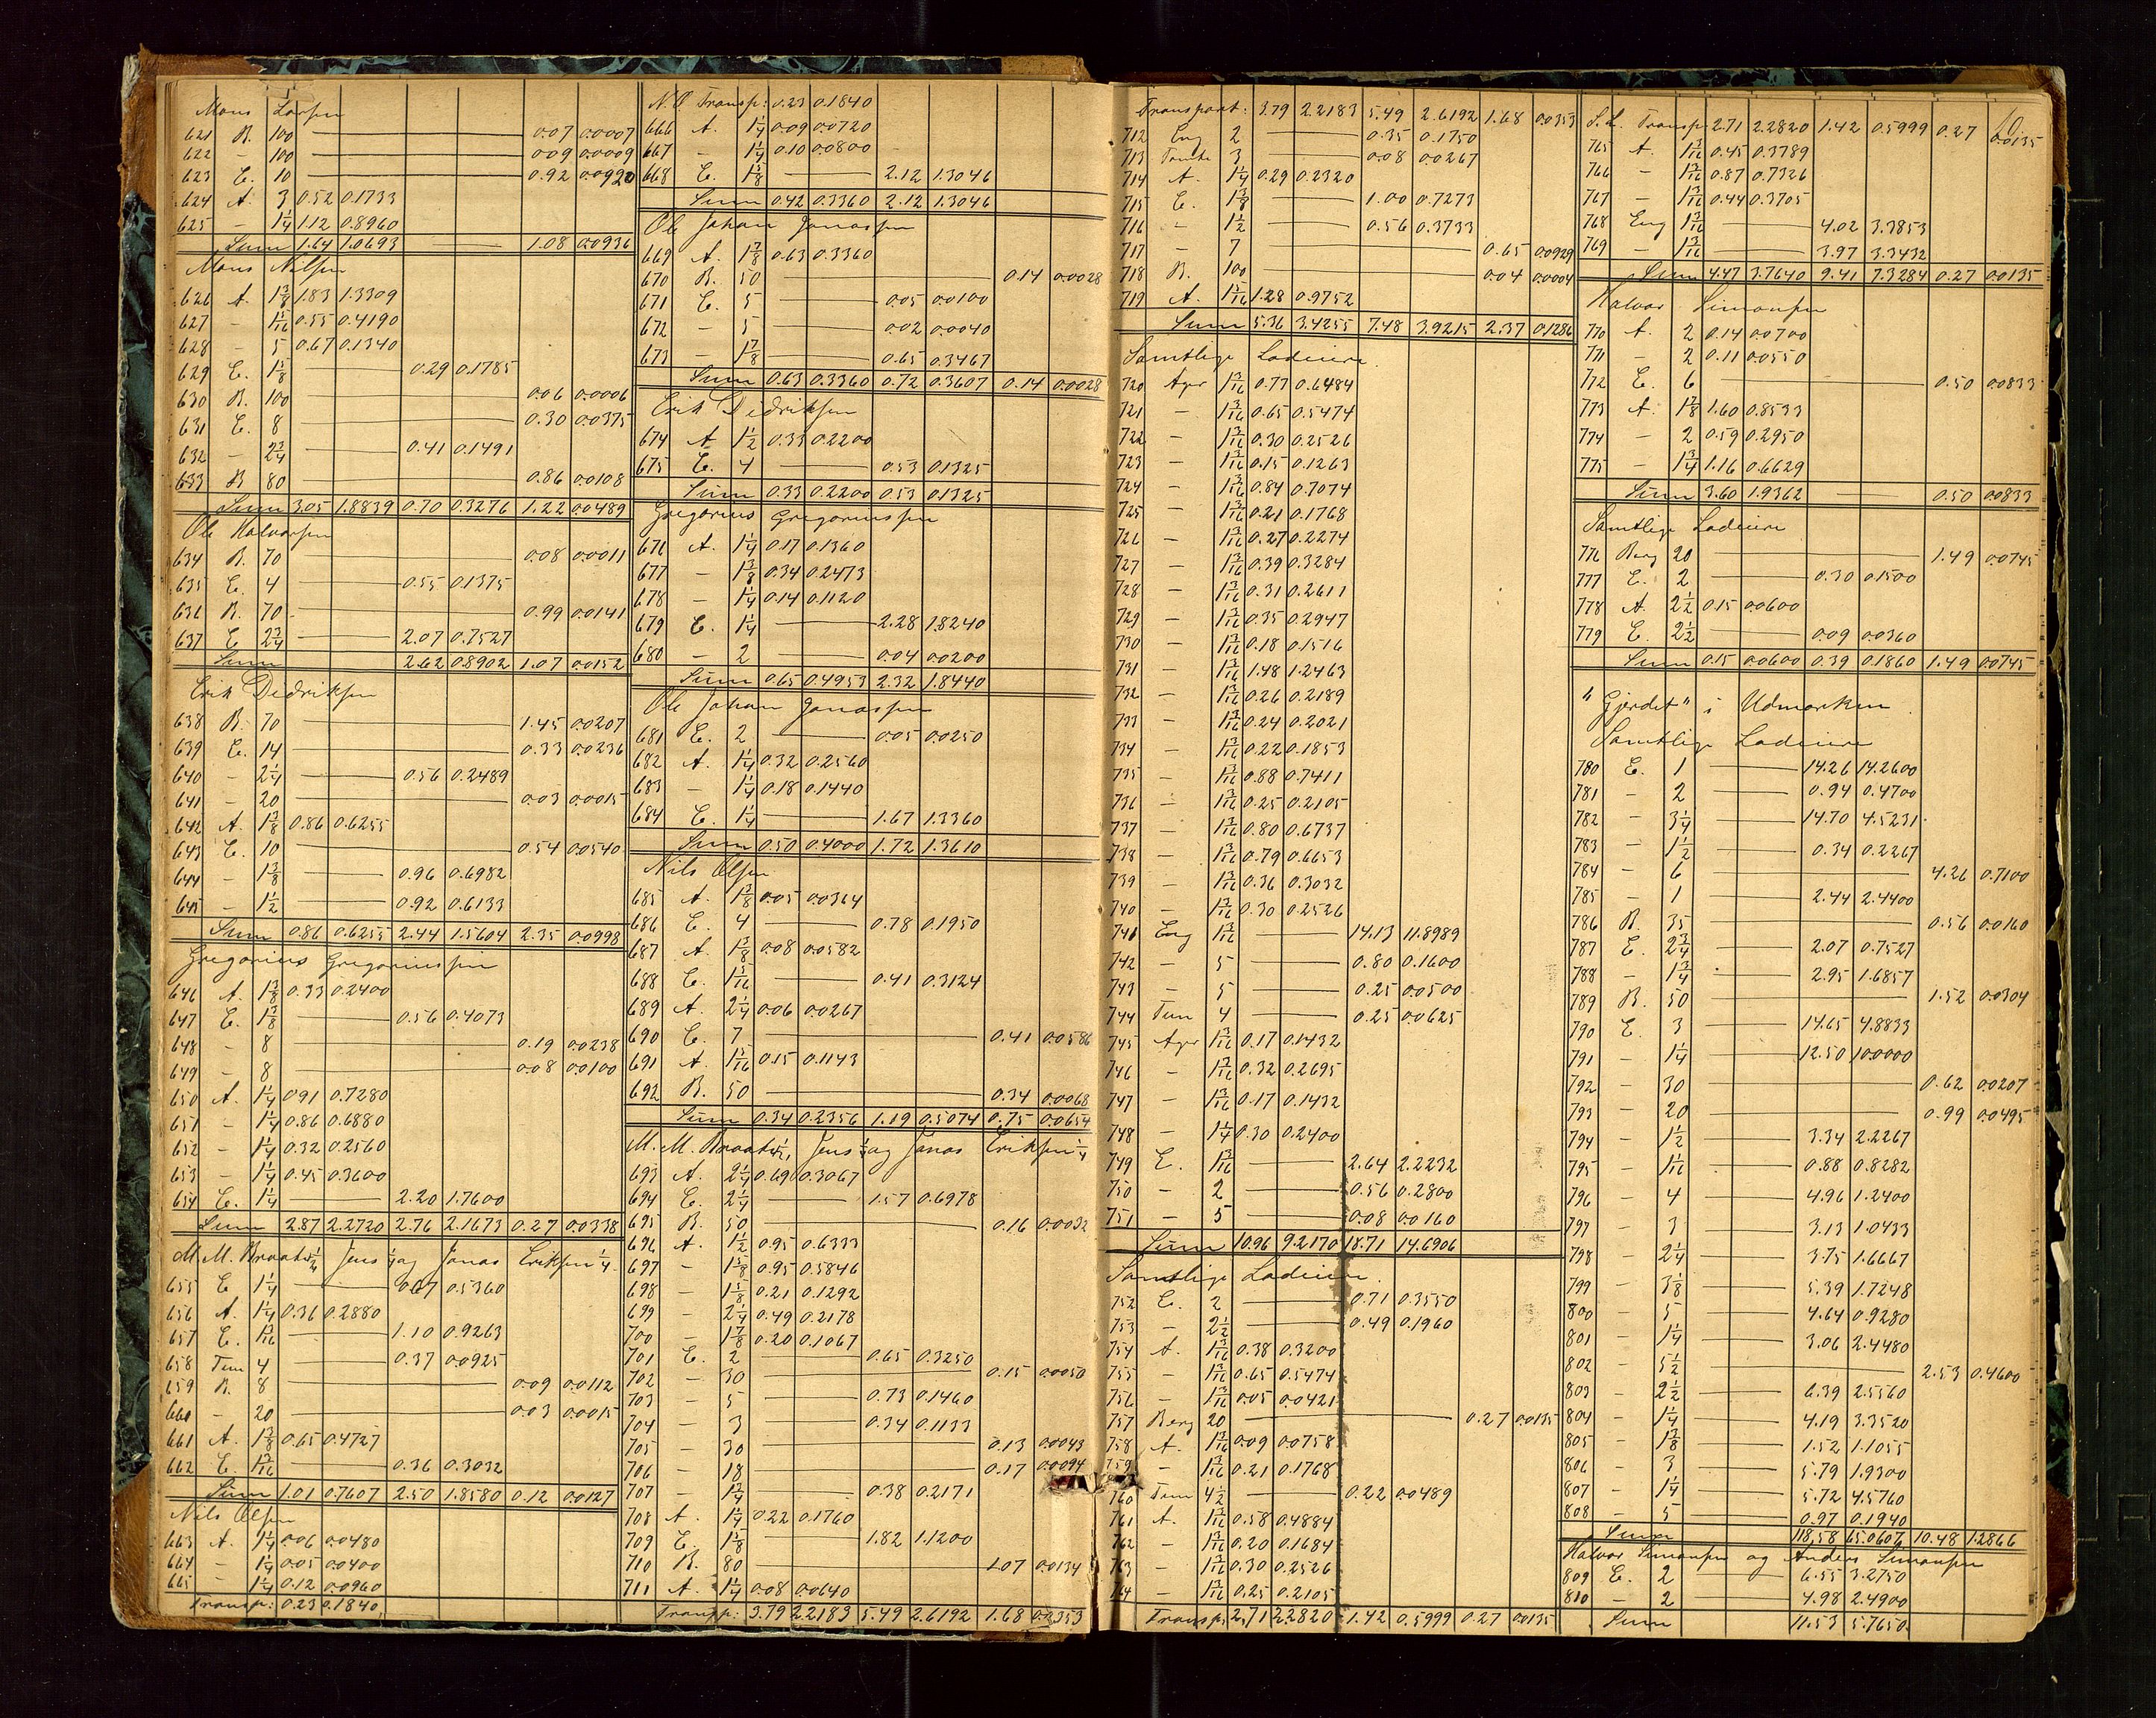 Mons Larsen
621 B. 100 0.07 0.0007
622 – 100 0.09 0.0009
623 E. 10 0.92 0.0920
624 A. 3 0.52 0.1733
625 – 1¼ 1.12 0.8960
Sum 1.64 1.0693 1.08 0.0936
Mons Nilsen
626 A. 1⅜ 1.83 1.3309
627 – 1 5/16 0.55 0.4190
628 – 5 0.67 0.1340
629 E. 1⅝ 0.29 0.1785
630 B. 100 0.06 0.0006
631 E. 8 0.30 0.0375
632 – 2¾ 0.41 0.1491
633 B 80 0.86 0.0108
Sum 3.05 1.8839 0.70 0.3276 1.22 0.0489
Ole Halvorsen
634 B. 70 0.08 0.0011
635 E. 4 0.55 0.1375
636 B. 70 0.99 0.0141
637 E 2¾ 2.07 0.7527
Sum 2.62 0.8902 1.07 0.0152
Erik Didriksen
638 B. 70 1.45 0.0207
639 E. 14 0.33 0.0236
640 – 2¼ 0.56 0.2489
641 – 20 0.03 0.0015
642 A. 1⅜ 0.86 0.6255
643 E. 10 0.54 0.0540
644 – 1⅜ 0.96 0.6982
645 – 1½ 0.92 0.6133
Sum 0.86 0.6255 2.44 1.5604 2.35 0.0998
Gregorius Gregoriussen
646 A. 1⅜ 0.33 0.2400
647 E. 1⅜ 0.56 0.4073
648 – 8 0.19 0.0238
649 – 8 0.08 0.0100
650 A. 1¼ 0.91 0.7280
651 – 1¼ 0.86 0.6880
652 – 1¼ 0.32 0.2560
653 – 1¼ 0.45 0.3600
654 E. 1¼ 2.20 1.7600
Sum 2.87 2.2720 2.76 2.1673 0.27 0.0338
M. M. Braaten ½, Jens ¼ og Jonas Eriksen ¼.
655 E 1¼ 0.67 0.5360
656 A. 1¼ 0.36 0.2880
657 E. 1 3/16 1.10 0.9263
658 Tun 4 0.37 0.0925
659 B. 8 0.09 0.0112
660 – 20 0.03 0.0015
661 A. 1⅜ 0.65 0.4727
662 E. 1 3/16 0.36 0.3032
Sum 1.01 0.7607 2.50 1.8580 0.12 0.0127
Nils Olsen
663 A. 1¼ 0.06 0.0480
664 – 1¼ 0.05 0.0400
665 – 1¼ 0.12 0.0960
Transp: 0.23 0.1840
N.O Transp: 0.23 0.1840
666 A. 1¼ 0.09 0.0720
667 – 1¼ 0.10 0.0800
668 E. 1⅝ 2.12 1.3046
Sum 0.42 0.3360 2.12 1.3046
Ole Johan Jonassen
669 A. 1⅞ 0.63 0.3360
670 B. 50 0.14 0.0028
671 E. 5 0.05 0.0100
672 – 5 0.02 0.0040
673 – 1⅞ 0.65 0.3467
Sum 0.63 0.3360 0.72 0.3607 0.14 0.0028
Erik Didriksen
674 A 1½ 0.33 0.2200
675 E. 4 0.53 0.1325
Sum 0.33 0.2200 0.53 0.1325
Gregorius Gregoriussen
676 A. 1¼ 0.17 0.1360
677 – 1⅜ 0.34 0.2473
678 – 1¼ 0.14 0.1120
679 E. 1¼ 2.28 1.8240
680 – 2 0.04 0.0200
Sum 0.65 0.4953 2.32 1.8440
Ole Johan Jonassen
681 E. 2 0.05 0.0250
682 A. 1¼ 0.32 0.2560
683 – 1¼ 0.18 0.1440
684 E. 1¼ 1.67 1.3360
Sum 0.50 0.4000 1.72 1.3610
Nils Olsen
685 A. 1⅜ 0.05 0.0364
686 E. 4 0.78 0.1950
687 A. 1⅜ 0.08 0.0582
688 E. 1 5/16 0.41 0.3124
689 A. 2¼ 0.06 0.0267
690 E. 7 0.41 0.0586
691 A. 1 5/16 0.15 0.1143
692 B. 50 0.34 0.0068
Sum 0.34 0.2356 1.19 0.5074 0.75 0.0654
M. M. Braaten ½, Jens ¼ og Jonas Eriksen ¼
693 A. 2¼ 0.69 0.3067
694 E. 2¼ 1.57 0.6978
695 B. 50 0.16 0.0032
696 A. 1½ 0.95 0.6333
697 – 1⅝ 0.95 0.5846
698 – 1⅝ 0.21 0.1292
699 – 2¼ 0.49 0.2178
700 – 1⅞ 0.20 0.1067
701 E. 2 0.65 0.3250
702 – 30 0.15 0.0050
703 – 5 0.73 0.1460
704 – 3 0.34 0.1133
705 – 30 0.13 0.0043
706 – 18 0.17 0.0094
707 – 1¾ 0.38 0.2171
708 A. 1¼ 0.22 0.1760
709 E. 1⅝ 1.82 1.1200
710 B. 80 1.07 0.0134
711 A. 1¼ 0.08 0.0640
Transp: 3.79 2.2183 5.49 2.6192 1.68 0.0353
Transport: 3.79 2.2183 5.49 2.6192 1.68 0.0353
712 Eng 2 0.35 0.1750
713 Tomte 3 0.08 0.0267
714 A. 1¼ 0.29 0.2320
715 E. 1⅜ 1.00 0.7273
716 – 1½ 0.56 0.3733
717 – 7 0.65 0.0929
718 B. 100 0.04 0.0004
719 A. 1 5/16 1.28 0.9752
Sum 5.36 3.4255 7.48 3.9215 2.37 0.1286
Samtlige Lodeiere
720 Ager 1 3/16 0.77 0.6484
721 – 1 3/16 0.65 0.5474
722 – 1 3/16 0.30 0.2526
723 – 1 3/16 0.15 0.1263
724 – 1 3/16 0.84 0.7074
725 – 1 3/16 0.21 0.1768
726 – 1 3/16 0.27 0.2274
727 – 1 3/16 0.39 0.3284
728 – 1 3/16 0.31 0.2611
729 – 1 3/16 0.35 0.2947
730 – 1 3/16 0.18 0.1516
731 – 1 3/16 1.48 1.2463
732 – 1 3/16 0.26 0.2189
733 – 1 3/16 0.24 0.2021
734 – 1 3/16 0.22 0.1853
735 – 1 3/16 0.88 0.7411
736 – 1 3/16 0.25 0.2105
737 – 1 3/16 0.80 0.6737
738 – 1 3/16 0.79 0.6653
739 – 1 3/16 0.36 0.3032
740 – 1 3/16 0.30 0.2526
741 Eng 1 3/16 14.13 11.8989
742 – 5 0.80 0.1600
743 – 5 0.25 0.0500
744 Tun 4 0.25 0.0625
745 Ager 1 3/16 0.17 0.1432
746 – 1 3/16 0.32 0.2695
747 – 1 3/16 0.17 0.1432
748 – 1¼ 0.30 0.2400
749 E. 1 3/16 2.64 2.2232
750 – 2 0.56 0.2800
751 – 5 0.08 0.0160
Sum 10.96 9.2170 18.71 14.6906
Samtlige Lodeiere.
752 E. 2 0.71 0.3550
753 – 2½ 0.49 0.1960
754 A. 1 3/16 0.38 0.3200
755 – 1 3/16 0.65 0.5474
756 – 1 3/16 0.05 0.0421
757 Berg 20 0.27 0.0135
758 A. 1 3/16 0.09 0.0758
759 – 1 3/16 0.21 0.1768
760 Tun 4½ 0.22 0.0489
761 A. 1 3/16 0.58 0.4884
762 – 1 3/16 0.20 0.1684
763 – 1 3/16 0.30 0.2526
764 – 1 3/16 0.25 0.2105
Transp. 2.71 2.2820 1.42 0.5999 0.27 0.0135
10
S.L. Transp. 2.71 2.2820 1.42 0.5999 0.27 0.0135
765 A. 1 3/16 0.45 0.3789
766 – 1 3/16 0.87 0.7326
767 – 1 3/16 0.44 0.3705
768 Eng 1 3/16 4.02 3.3853
769 – 1 3/16 3.97 3.3432
Sum 4.47 3.7640 9.41 7.3284 0.27 0.0135
Halvor Simonsen
770 A. 2 0.14 0.0700
771 – 2 0.11 0.0550
772 E. 6 0.50 0.0833
773 A. 1⅞ 1.60 0.8533
774 – 2 0.59 0.2950
775 – 1¾ 1.16 0.6629
Sum 3.60 1.9362 0.50 0.0833
Samtlige Lodeiere
776 Berg 20 1.49 0.0745
777 E. 2 0.30 0.1500
778 A. 2½ 0.15 0.0600
779 E. 2½ 0.09 0.0360
Sum 0.15 0.0600 0.39 0.1860 1.49 0.0745
"Gjerdet" i Udmarken.
Samtlige Lodeiere
780 E. 1 14.26 14.2600
781 – 2 0.94 0.4700
782 – 3¼ 14.70 4.5231
783 – 1½ 0.34 0.2267
784 – 6 4.26 0.7100
785 – 1 2.44 2.4400
786 B. 35 0.56 0.0160
787 E. 2¾ 2.07 0.7527
788 – 1¾ 2.95 1.6857
789 B. 50 1.52 0.0304
790 E. 3 14.65 4.8833
791 – 1¼ 12.50 10.0000
792 – 30 0.62 0.0207
793 – 20 0.99 0.0495
794 – 1½ 3.34 2.2267
795 – 1 1/16 0.88 0.8282
796 – 4 4.96 1.2400
797 – 3 3.13 1.0433
798 – 2¼ 3.75 1.6667
799 – 3⅛ 5.39 1.7248
800 – 5 4.64 0.9280
801 – 1¼ 3.06 2.4480
802 – 5½ 2.53 0.4600
803 – 2½ 6.39 2.5560
804 – 1¼ 4.19 3.3520
805 – 1⅜ 1.52 1.1055
806 – 3 5.79 1.9300
807 – 1¼ 5.72 4.5760
808 – 5 0.97 0.1940
Sum 118,58 65.0607 10.48 1.2866
Halvor Simonsen og Anders Simonsen
809 E. 2 6.55 3.2750
810 – 2 4.98 2.4900
Sum 11.53 5.7650